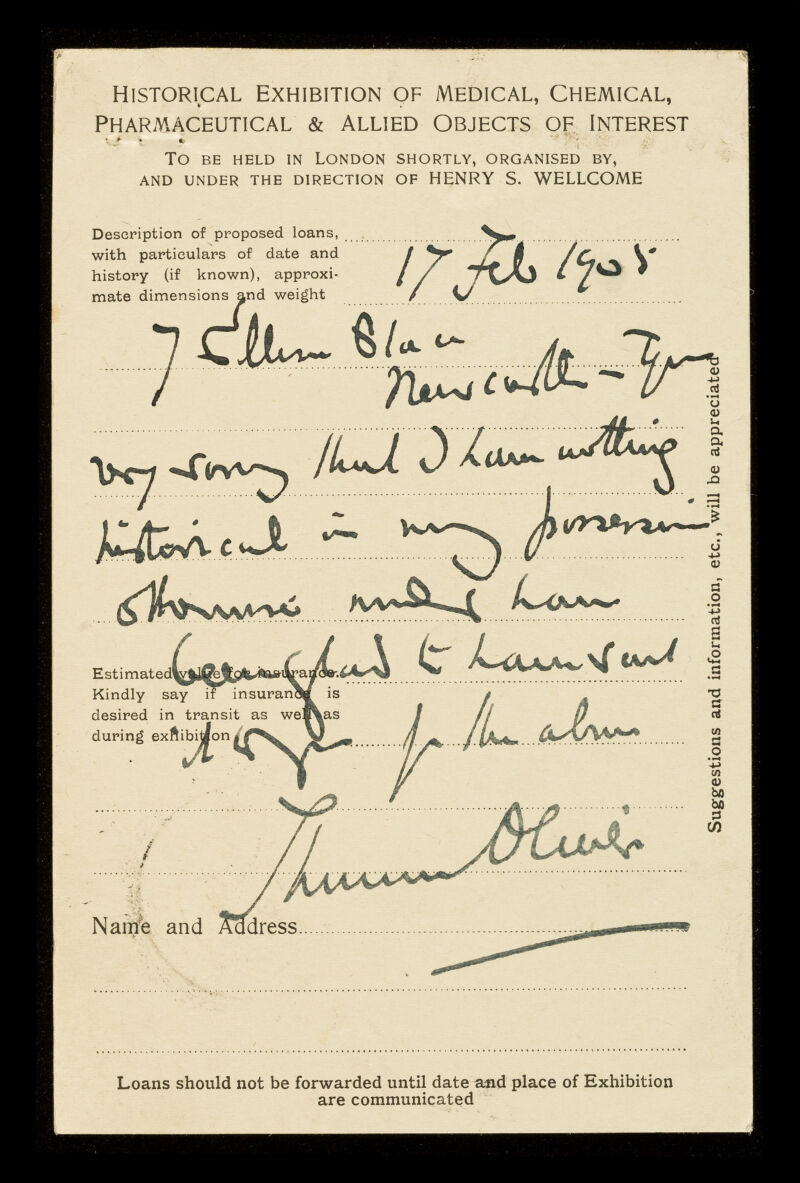 HISTORICAL EXHIBITION OF MEDICAL, CHEMICAL,
PHARMACEUTICAL & ALLIED OBJECTS OF INTEREST
TO BE HELD IN LONDON SHORTLY, ORGANISED BY,
AND UNDER THE DIRECTION OF HENRY S. WELLCOME
Description of proposed loans,
with particulars of date and
history (if known), approxi-
mate dimensions and weight
17 Feb 1905
7 Ellison Place
Newcastle - Tyne
very sorry that I have nothing
historical in my possession
otherwise would have
been glad to have sent
Estimated value for insurance.
Kindly say if insurance is
desired in transit as well as
during exhibition
for the above
Thomas Oliver
Name and Address
Loans should not be forwarded until date and place of Exhibition
are communicated
Suggestions and information, etc., will be appreciated